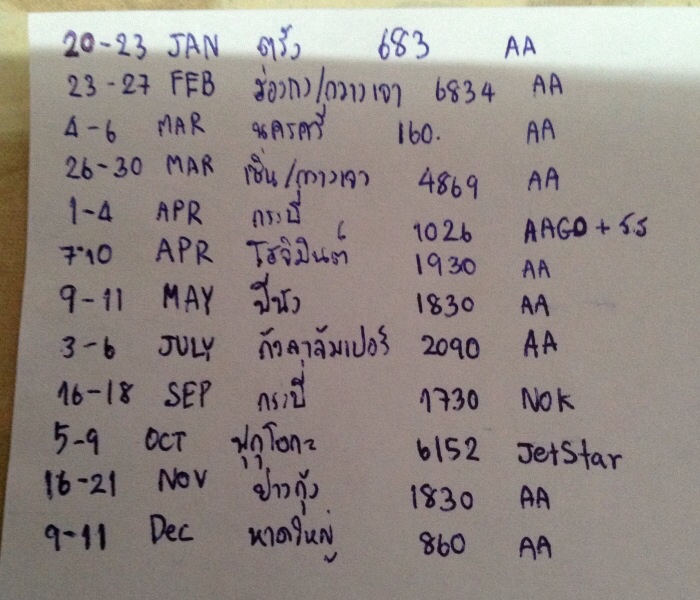 20-23 JAN ตรัง 683 AA
23-27 FEB ฮ่องกง/กวางเจา 6834 AA
4-6 MAR นครศรี 160. AA
26-30 MAR เซิน/กวางเจา 4869 AA
1-4 APR กระบี่ 1026 AAGO + รร
7-10 APR โฮจิมินต์ 1930 AA
9-11 MAY ปีนัง 1830 AA
3-6 JULY กัวลาลัมเปอร์ 2090 AA
16-18 SEP กระบี่ 1730 NOK
5-9 OCT ฟุกุโอกะ 6152 JetStar
18-21 NOV ย่างกุ้ง 1830 AA
9-11 Dec หาดใหญ่ 860 AA